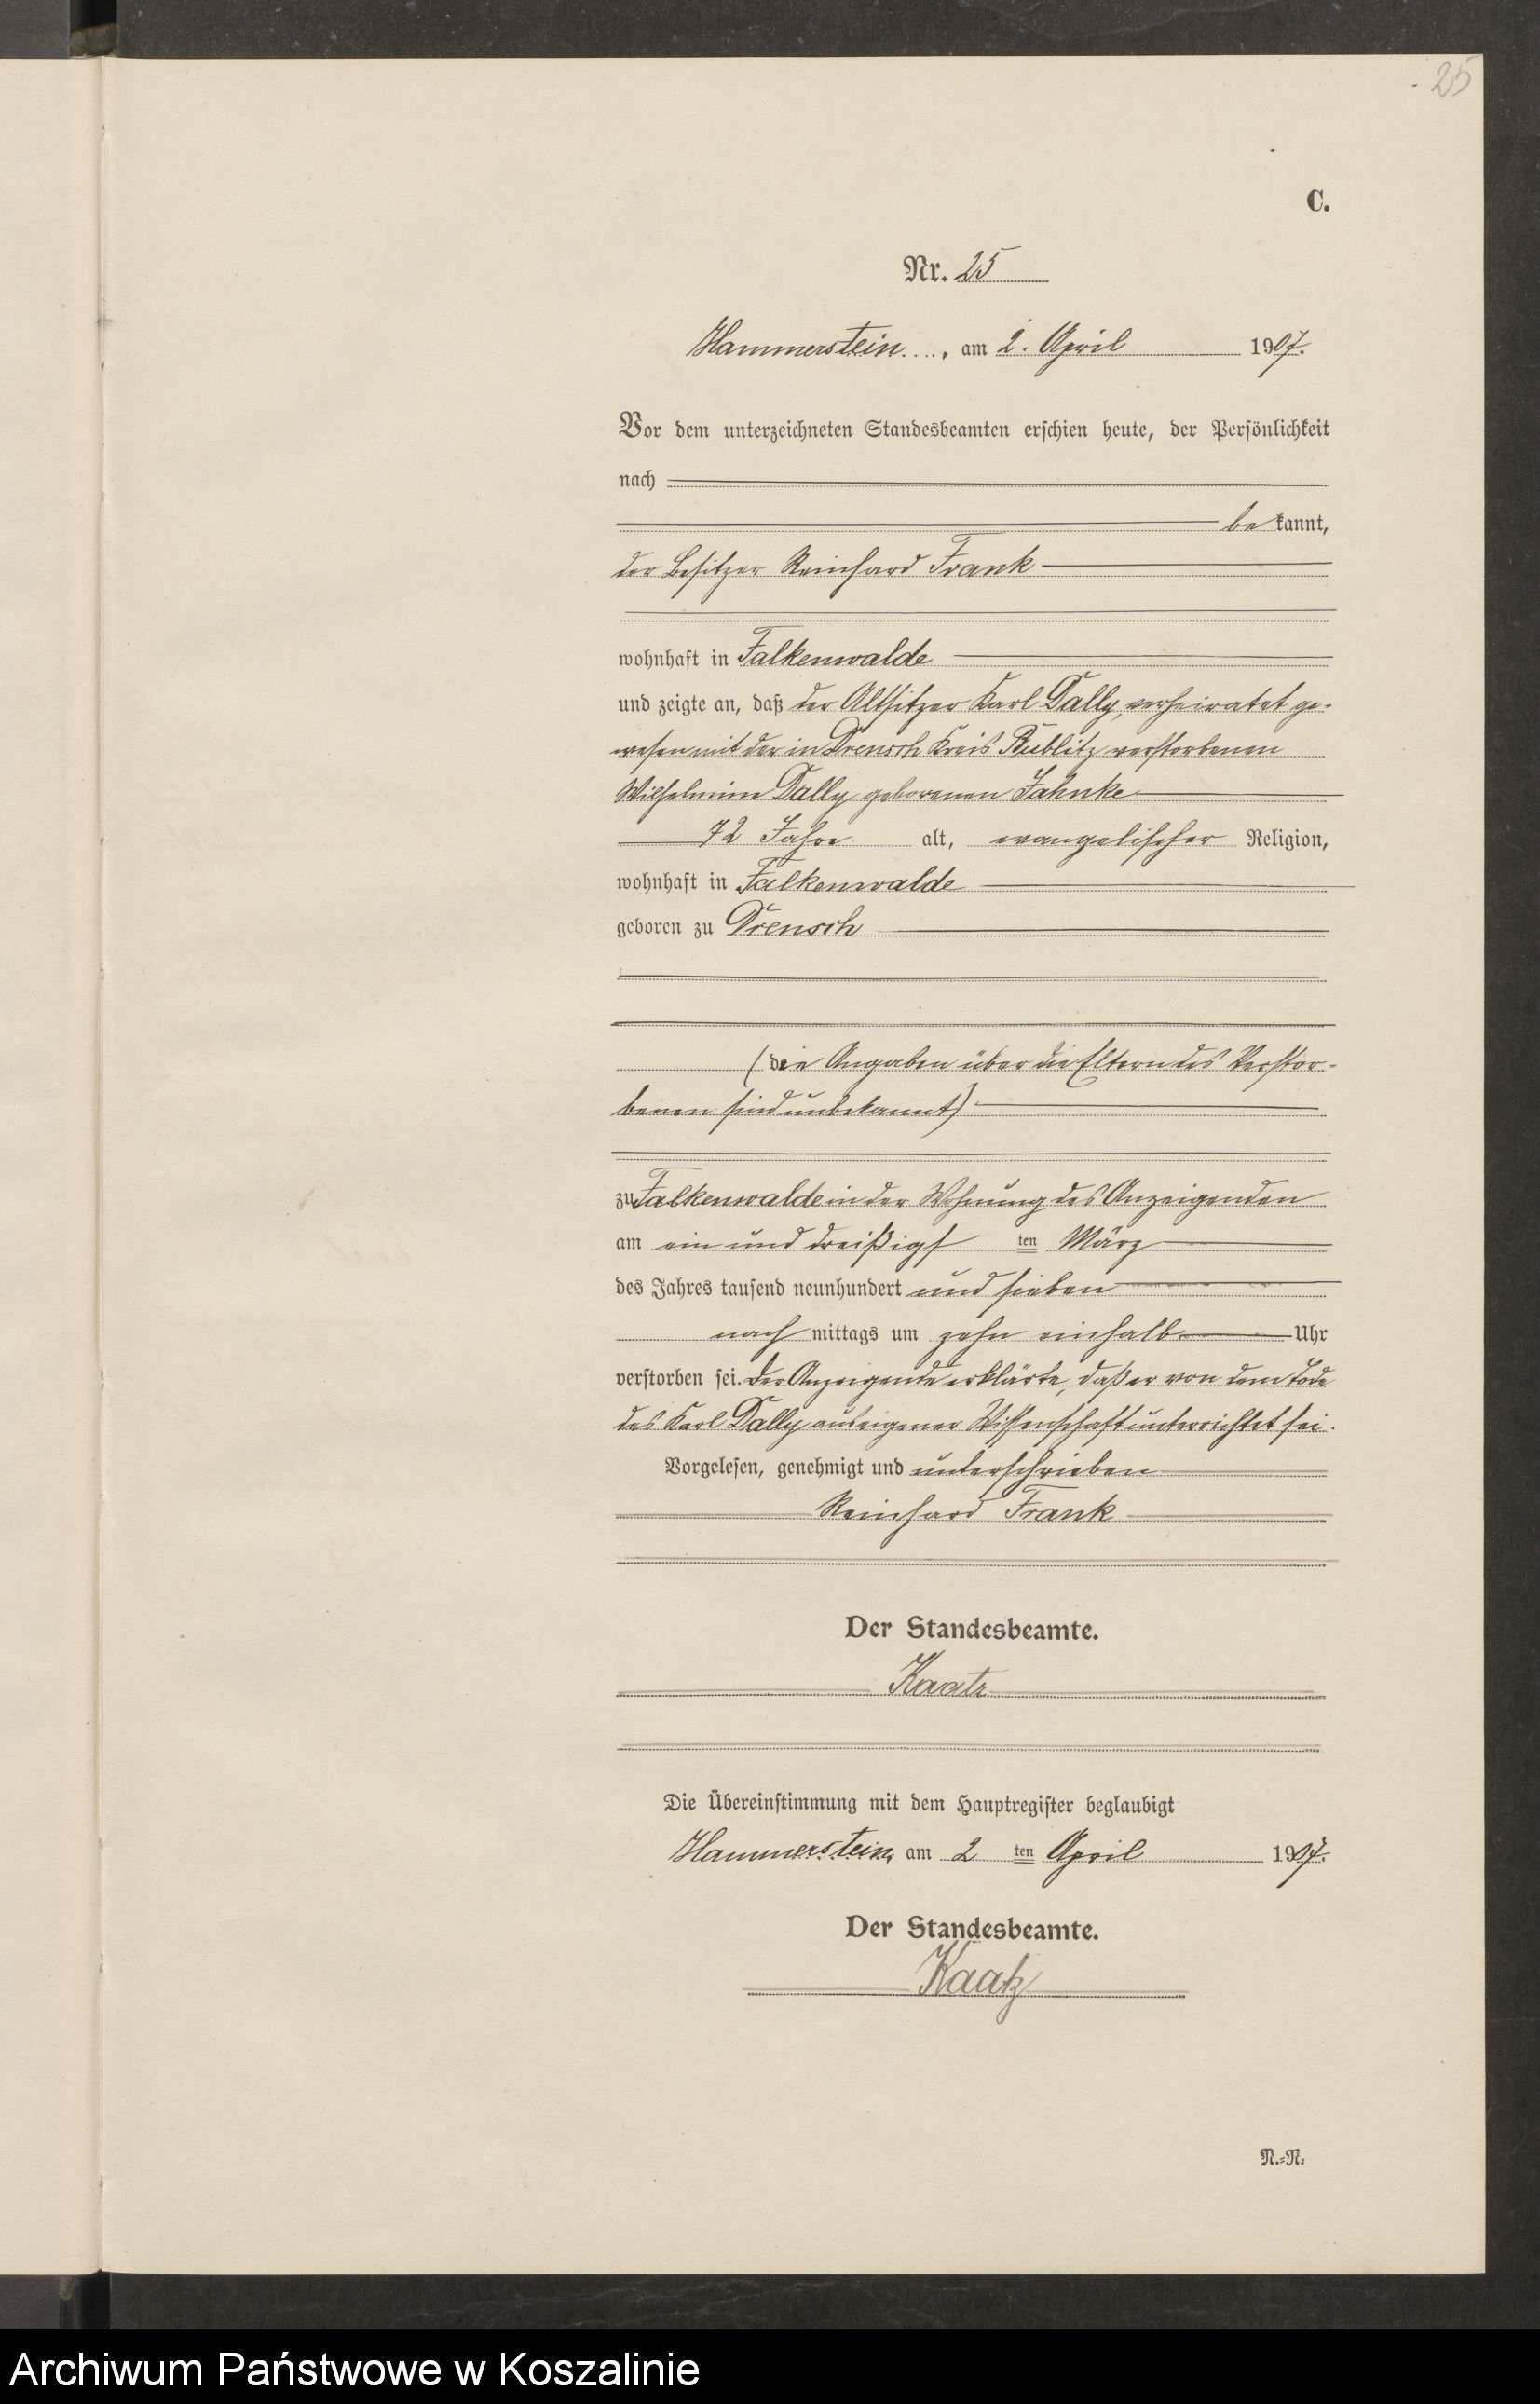 25
C.
Nr. 25
Hammerstein, am 2. April 1907.
Vor dem unterzeichneten Standesbeamten erschien heute, der Persönlichkeit
nach
be kannt,
der Besitzer Reinhard Frank
wohnhaft in Falkenwalde
und zeigte an, daß der Altsitzer Karl Dally, verheiratet ge-
wesen mit der in Drensch Kreis Bublitz verstorbenen
Wilhelmine Dally geborenen Jahnke
72 Jahre alt, evangelischer Religion,
wohnhaft in Falkenwalde
geboren zu Drensch
(die Angaben über die Eltern des Verstor-
benen sind unbekannt)
zu Falkenwalde in der Wohnung des Anzeigenden
am ein und dreißigs ten März
des Jahres tausend neunhundert und sieben
nach mittags um zehn einhalb Uhr
verstorben sei. Der Anzeigende erklärte, daß er von dem Tode
des Karl Dally aus eigener Wissenschaft unterrichtet sei.
Vorgelesen, genehmigt und unterschrieben
Reinhard Frank
Der Standesbeamte.
Kaatz
Die Übereinstimmung mit dem Hauptregister beglaubigt
Hammerstein, am 2 ten April 1907.
Der Standesbeamte.
Kaatz
N.=N.
Archiwum Państwowe w Koszalinie